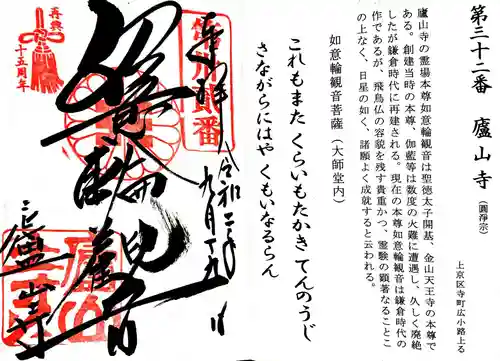 第三十二番　廬山寺（圓淨宗）
上京区寺町広小路上る
廬山寺の霊場本尊如意輪観音は聖徳太子開基、金山天王寺の本尊で
ある。創建当時の本尊、伽藍等は数度の火難に遭遇し、久しく廃絶
したが鎌倉時代に再建される。現在の本尊如意輪観音は鎌倉時代の
作であるが、飛鳥仏の容貌を残す貴重かつ、霊験の顕著なることこ
の上なく、日星の如く、諸願よく成就すると云われる。
如意輪観音菩薩（大師堂内）
これもまた くらいもたかき てんのうじ
さながらにはや くもいなるらん
奉拝
令和二年
九月十九日
洛陽三十二番
如意輪観音
廬山寺
再興
十五周年